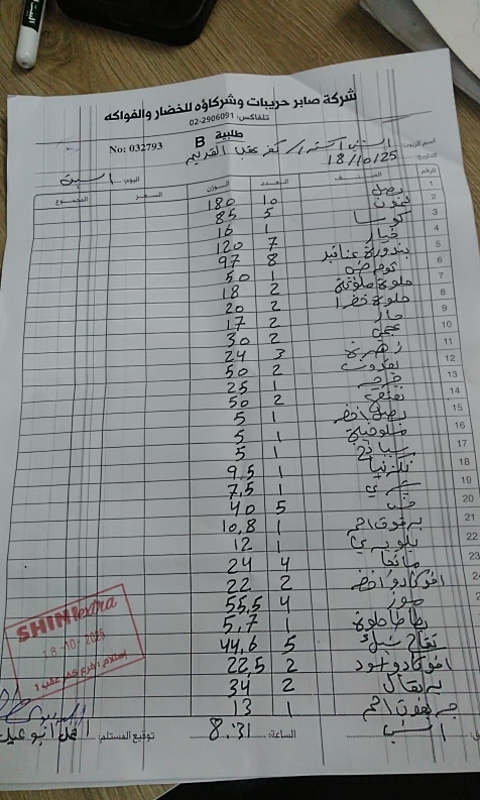 شركة صابر حريبات وشركاؤه للخضار والفواكه
تلفاكس: 02-2906091
طلبية B
No: 032793
اسم الزبون: السيد اكسترا / كفر عقب القديم
التاريخ: 18/10/25
اليوم: السبت
الرقم الصنف العدد الوزن السعر المجموع
1 بصل 10 180
2 ليمون 5 85
3 كوسا 1 16
4 خيار 7 120
5 بندورة عناقيد 8 97
6 1 50
7 حلوة ملونة 2 18
8 حلوة خضرا 2 20
9 حار 2 17
10 عجمي 2 30
11 زهرة 3 24
12 2 50
13 1 25
14 2 50
15 بصل اخضر 1 5
16 ملوخية 1 5
17 سبانخ 1 5
18 نكترينا 1 9,5
19 1 7,5
20 خس 5 40
21 برقوق احمر 1 10,8
22 بلوبري 1 12
23 مانجا 4 24
24 افوكادو اخضر 2 22
موز 4 55,5
بطاطا حلوة 1 5,7
تفاح سكري 5 44,6
افوكادو اسود 2 22,5
برتقال 2 34
جريفوت احمر 1 13
السبت
الساعة: 8:31
توقيع المستلم:
SHINI extra
18-10-2025
استلام: فرع كفر عقب 1